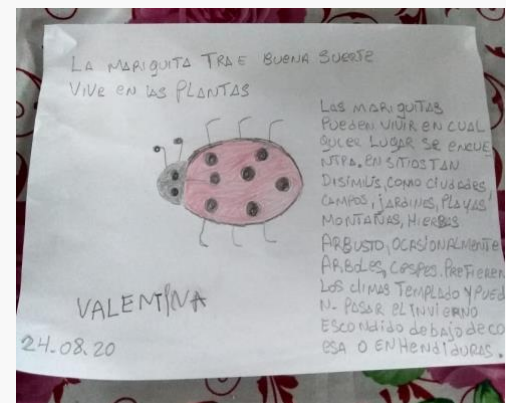 LA MARIQUITA TRAE BUENA SUERTE
VIVE EN LAS PLANTAS
LAS MARIQUITAS
PUEDEN VIVIR EN CUAL
QUIER LUGAR SE ENCUE
NTRA. EN SITIOS TAN
DISIMILIS, COMO CIUDADES,
CAMPOS, JARDINES, PLAYAS
MONTAÑAS, HIERBAS
ARBUSTO, OCASIONALMENTE
ARBOLES, CESPES. PREFIEREN
LOS CLIMAS TEMPLADO Y PUED
N- PASAR EL INVIERNO
ESCONDIDO DEBAJO DE CO
ESA O EN HENDIDURAS.
VALENTINA
24.08.20